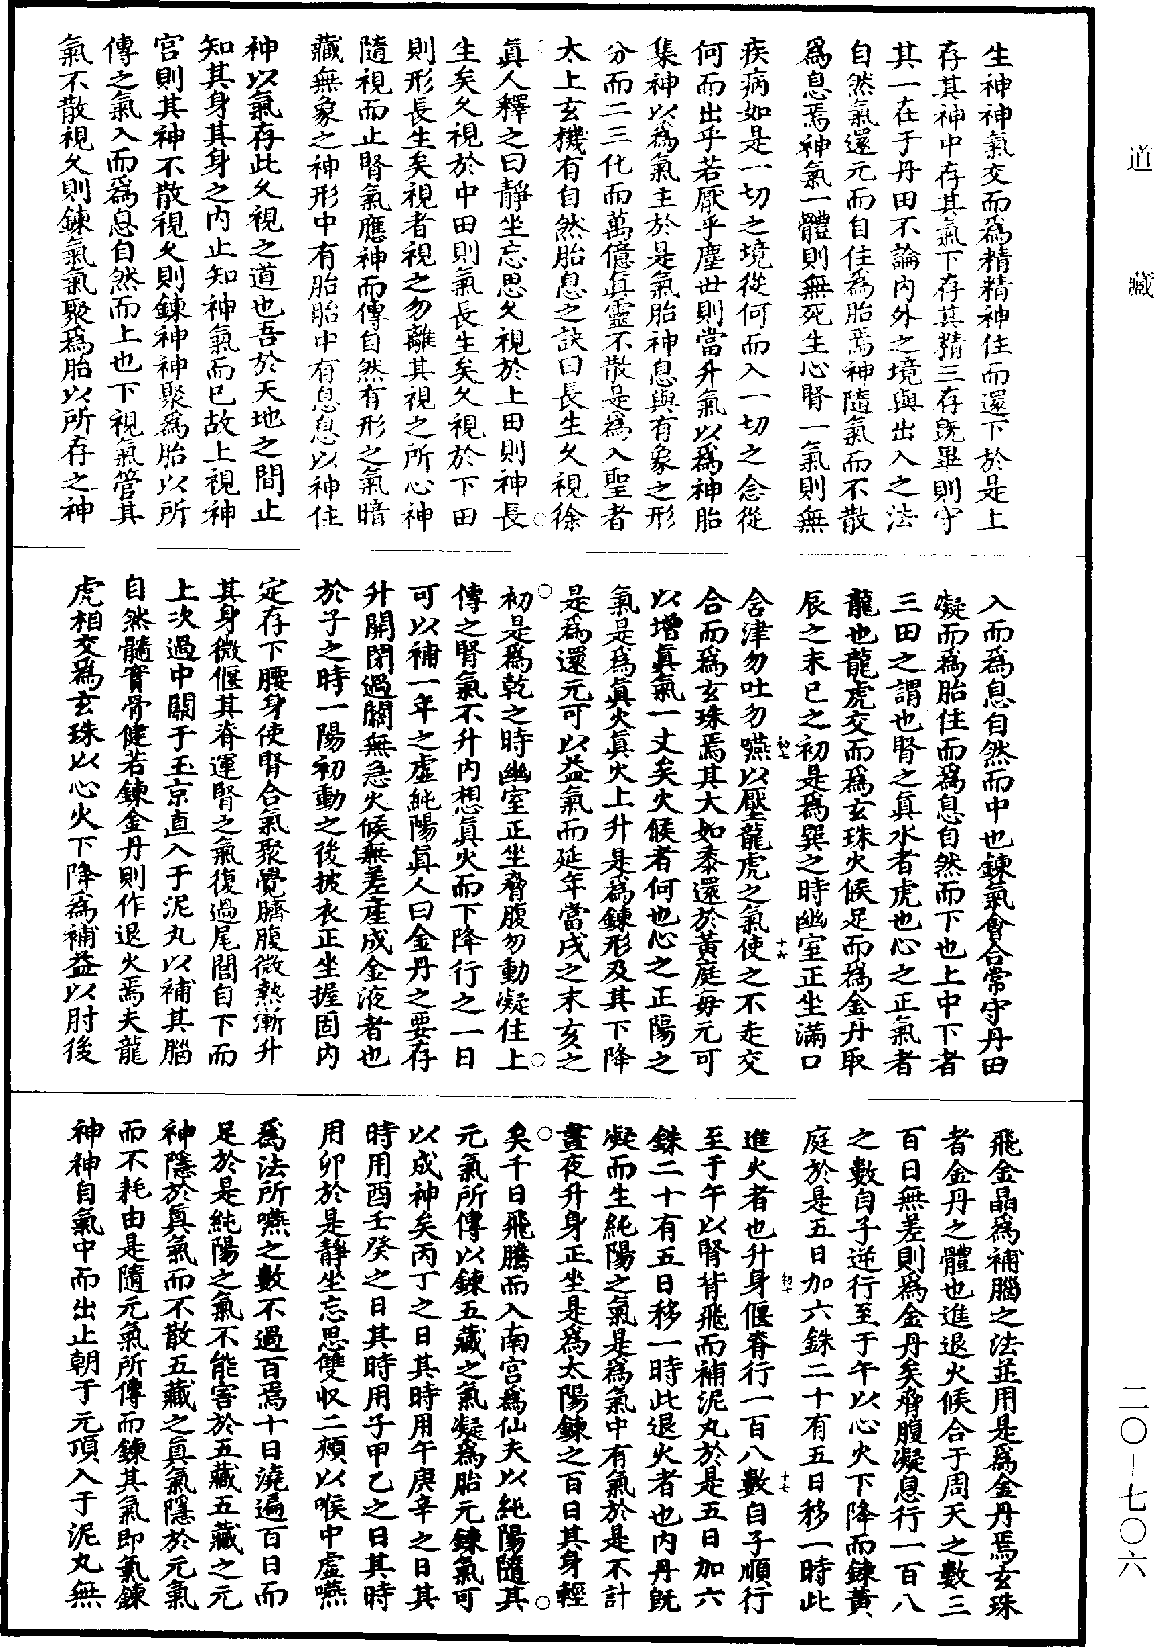 道藏
生神神氣交而為精精神住而還下於是上
存其神中存其氣下存其精三存既畢則守
其一在于丹田不論內外之境與出入之法
自然氣還元而自住為胎焉神隨氣而不散
為息焉神氣一體則無死生心腎一氣則無
疾病如是一切之境從何而入一切之念從
何而出乎若厭乎塵世則當升氣以為神胎
集神以為氣主於是氣胎神息與有象之形
分而二三化而萬億真靈不散是為入聖者
太上玄機有自然胎息之訣曰長生久視徐
真人釋之曰靜坐忘思久視於上田則神長
生矣久視於中田則氣長生矣久視於下田
則形長生矣視者視之勿離其視之所心神
隨視而止腎氣應神而傳自然有形之氣暗
藏無象之神形中有胎胎中有息息以神住
神以氣存此久視之道也吾於天地之間止
知其身其身之內止知神氣而已故上視神
宮則其神不散視久則鍊神神聚為胎以所
傳之氣入而為息自然而上也下視氣管其
氣不散視久則鍊氣氣聚為胎以所存之神
入而為息自然而中也鍊氣會合常守丹田
凝而為胎住而為息自然而下也上中下者
三田之謂也腎之真水者虎也心之正氣者
龍也龍虎交而為玄珠火候足而為金丹取
辰之末巳之初是為巽之時幽室正坐滿口
含津勿吐勿嚥以壓龍虎之氣使之不走交
合而為玄珠焉其大如黍還於黃庭每元可
以增真氣一丈矣火候者何也心之正陽之
氣是為真火真火上升是為鍊形及其下降
是為還元可以益氣而延年當戌之末亥之
初是為乾之時幽室正坐脅腹勿動凝住上
傳之腎氣不升內想真火而下降行之一日
可以補一年之虛純陽真人曰金丹之要存
升開閉過關無急火候無差產成金液者也
於子之時一陽初動之後披衣正坐握固內
定存下腰身使腎合氣聚覺臍腹微熱漸升
其身微偃其脊運腎之氣復過尾閭自下而
上次過中關于玉京直入于泥丸以補其腦
自然髓實骨健若鍊金丹則作退火焉夫龍
虎相交為玄珠以心火下降為補益以肘後
飛金晶為補腦之法並用是為金丹焉玄珠
者金丹之體也進退火候合于周天之數三
百日無差則為金丹矣脅腹凝息行一百八
之數自子逆行至于午以心火下降而鍊黃
庭於是五日加六銖二十有五日移一時此
進火者也升身偃脊行一百八數自子順行
至于午以腎背飛而補泥丸於是五日加六
銖二十有五日移一時此退火者也內丹既
凝而生純陽之氣是為氣中有氣於是不計
晝夜升身正坐是為太陽鍊之百日其身輕
矣千日飛騰而入南宮為仙夫以純陽隨其
元氣所傳以鍊五藏之氣凝為胎元鍊氣可
以成神矣丙丁之日其時用午庚辛之日其
時用酉壬癸之日其時用子甲乙之日其時
用卯於是靜坐忘思雙收二頰以喉中虛嚥
為法所嚥之數不過百焉十日澆遍百日而
足於是純陽之氣不能害於五藏五藏之元
神隱於真氣而不散五藏之真氣隱於元氣
而不耗由是隨元氣所傳而鍊其氣即氣鍊
神神自氣中而出止朝于元頂入于泥丸無
二〇—七〇六